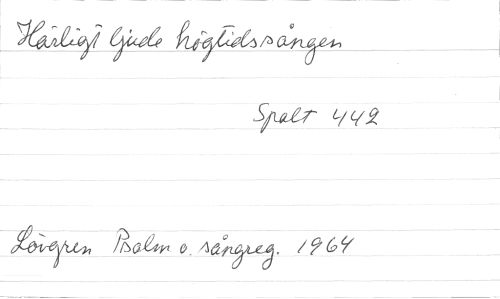 Härligt ljude högtidssången
Spalt 442
Lövgren Psalm o. sångreg. 1964